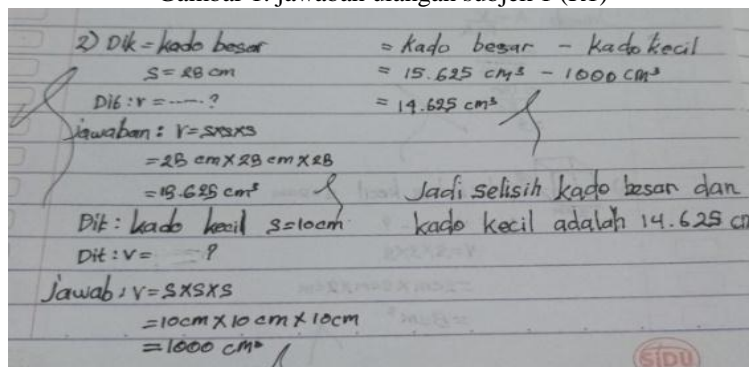 Gambar 1. jawaban ulangan subjek 1
2) Dik = kado besar
S = 25 cm
Dit : v = ...... ?
jawaban : V = SXSXS
= 25 cm X 25 cm X 25
= 15.625 cm³
Dik : kado kecil S = 10cm
Dit : V = ?
Jawab : V = SXSXS
= 10cm X 10 cm X 10cm
= 1000 cm³
= Kado besar - kado kecil
= 15.625 cm³ - 1000 cm³
= 14.625 cm³
Jadi selisih kado besar dan
kado kecil adalah 14.625 cm
SIDU